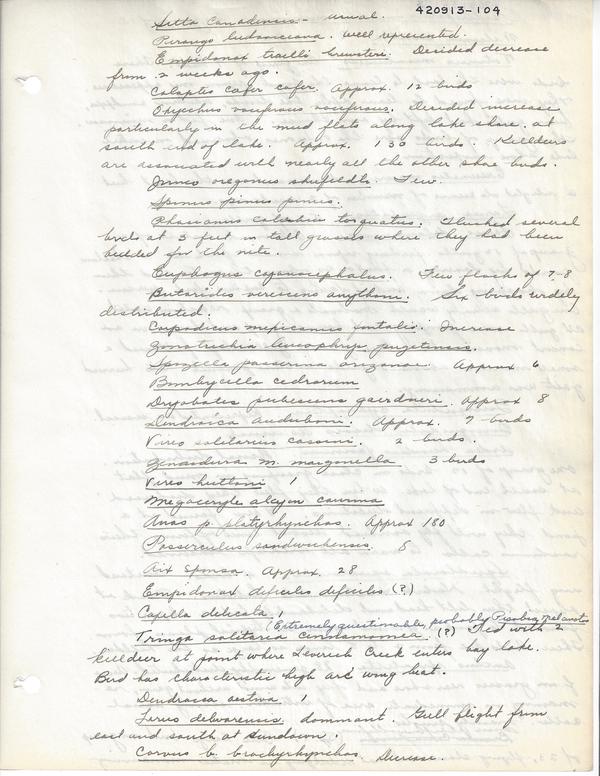 420913-104
Sitta canadensis - usual.
Piranga ludoviciana. well represented.
Empidonax trailli brewsteri. Decided decrease
from 2 weeks ago.
Colaptes cafer cafer. Approx. 12 birds
Oxyechus vociferus vociferous. Decided increase
particularly in the mud flats along lake shore, at
south end of lake. Approx. 130 birds. Killdeers
are associated with nearly all the other shore birds.
Junco oreganus shufeldti. Few.
Spinus pinus pinus.
Phasianus colchicus torquatus. Flushed several
birds at 3 feet in tall grasses where they had been
bedded for the nite.
Euphagus cyanocephalus. Few flocks of 7-8
Butorides virescens anythonii. Six birds widely
distributed.
Carpodicus mexicanus fontalis. Increase
Zonotrichia leucophrys pugetensis.
Spizella passerina arizonae. Approx 6
Bombycilla cedrorum
Dryobates pubescens gairdneri. Approx 8
Dendroica auduboni. Approx. 7 birds
Vireo solitarius cassini. 2 birds.
Zenaidura m. marginella 3 birds
Vireo huttoni 1
Megaceryle alcyon caurina
Anas p. platyrhynchos. Approx 180
Passerculus sandwichensis. 8
Aix sponsa. Approx. 28
Empidonax dificilis dificilis (?)
Capella delicata. 1
(Extremely questionable, probably Pisobia melanotos
Tringa solitaria cinnamomea. (?) with 2
killdeer at point where Leverich Creek enters bay lake.
Bird has characteristic high arc wing beat.
Dendroica aestiva 1
Larus delwarensis dominant. Gull flight from
east and south at sundown.
Corvus b. brachyrhynchos. Decrease.